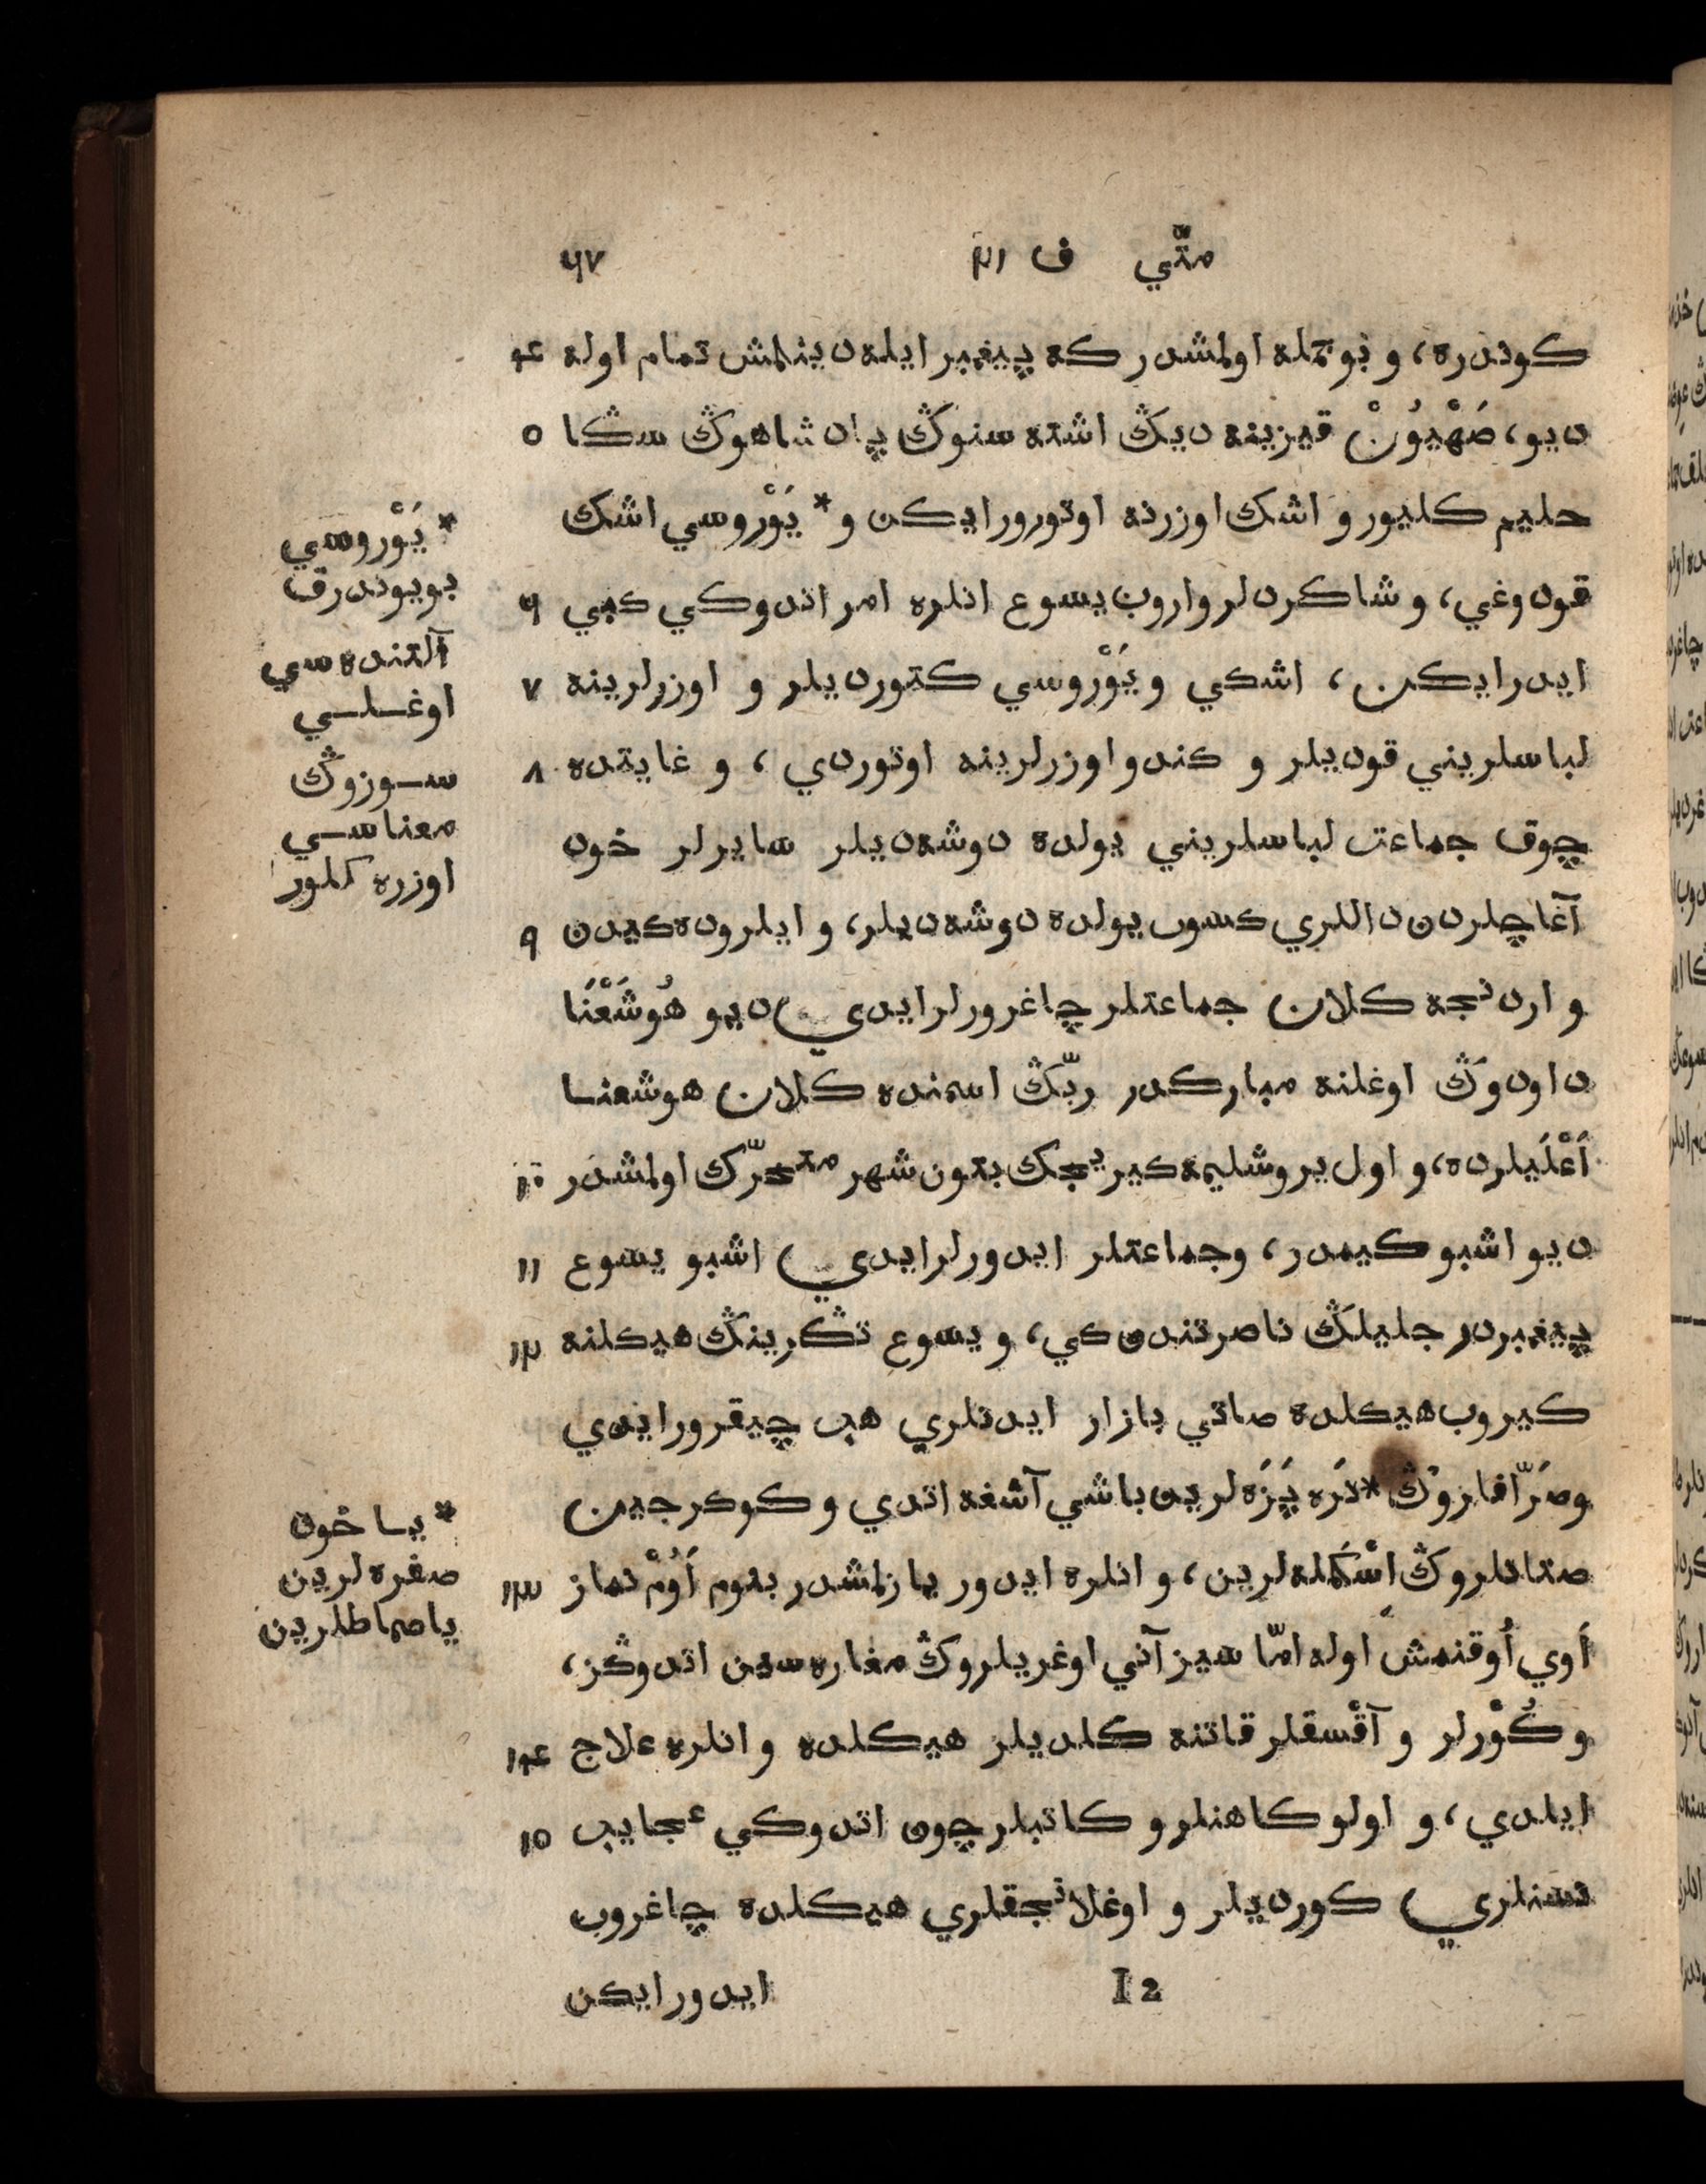 متّي ف ٢١ ٦٧
كوندره، و بو جمله اولمشدر كه پيغمبر ايله دينلمش تمام اوله ٤
ديو، صَهْيُونْ قيزينه ديڭ اشته سنوڭ پادشاهوڭ سڭا ٥
حليم كليور و اشك اوزرنه اوتورورايكن و * يَوْروسي اشك
قودوغي، و شاكردلر واروب يسوع انلره امر اتدوكي كبي ٦
ايدرايكن، اشكي و يَوْروسي كتورديلر و اوزرلرينه ٧
لباسلريني قوديلر و كندو اوزرلرينه اوتوردي، و غايتده ٨
چوق جماعت لباسلريني يولده دوشه ديلر سايرلر خود
آغاچلردن داللري كسوب يولده دوشه ديلر، و ايلروده كيدن ٩
و اردنجه كلان جماعتلر چاغرورلرايدي ديو هُوشَعْنَا
داودوڭ اوغلنه مباركدر ربّڭ اسمنده كلان هوشعنا
أَعْلَيلرده، و اول يروشليمه كيريجك بتون شهر متحرّك اولمشدر ١٠
ديو اشبو كيمدر، و جماعتلر ايدورلرايدي اشبو يسوع ١١
پيغمبردر جليلڭ ناصرتندن كي، و يسوع تڭرينڭ هيكلنه ١٢
كيروب هيكلده صاتي بازار ايدنلري هپ چيقرورايدي
وصَرّافلروڭ * تَره پَزَه لرين باشي آشغه اتدي و كوكرجين
صتانلروڭ اِسْكَمله لرين، و انلره ايدور يازلمشدر بنوم أَوُمْ نماز ١٣
أوي أُوقنمش اوله امّا سيز آني اوغريلروڭ مغاره سين اتدوڭز،
و كُوْرلر و آقْسقلر قاتنه كلديلر هيكلده و انلره علاج ١٤
ايلدي، و اولو كاهنلر و كاتبلر چون اتدوكي عجايب ١٥
نسنلري كورديلر و اوغلانجقلري هيكلده چاغروب
I 2 ايدورايكن
* يَوْروسي
بويوندرق
آلتنده سي
اوغلسي
سوزوڭ
معناسي
اوزره كلور
* يا خود
صفره لرين
ياصماطلرين